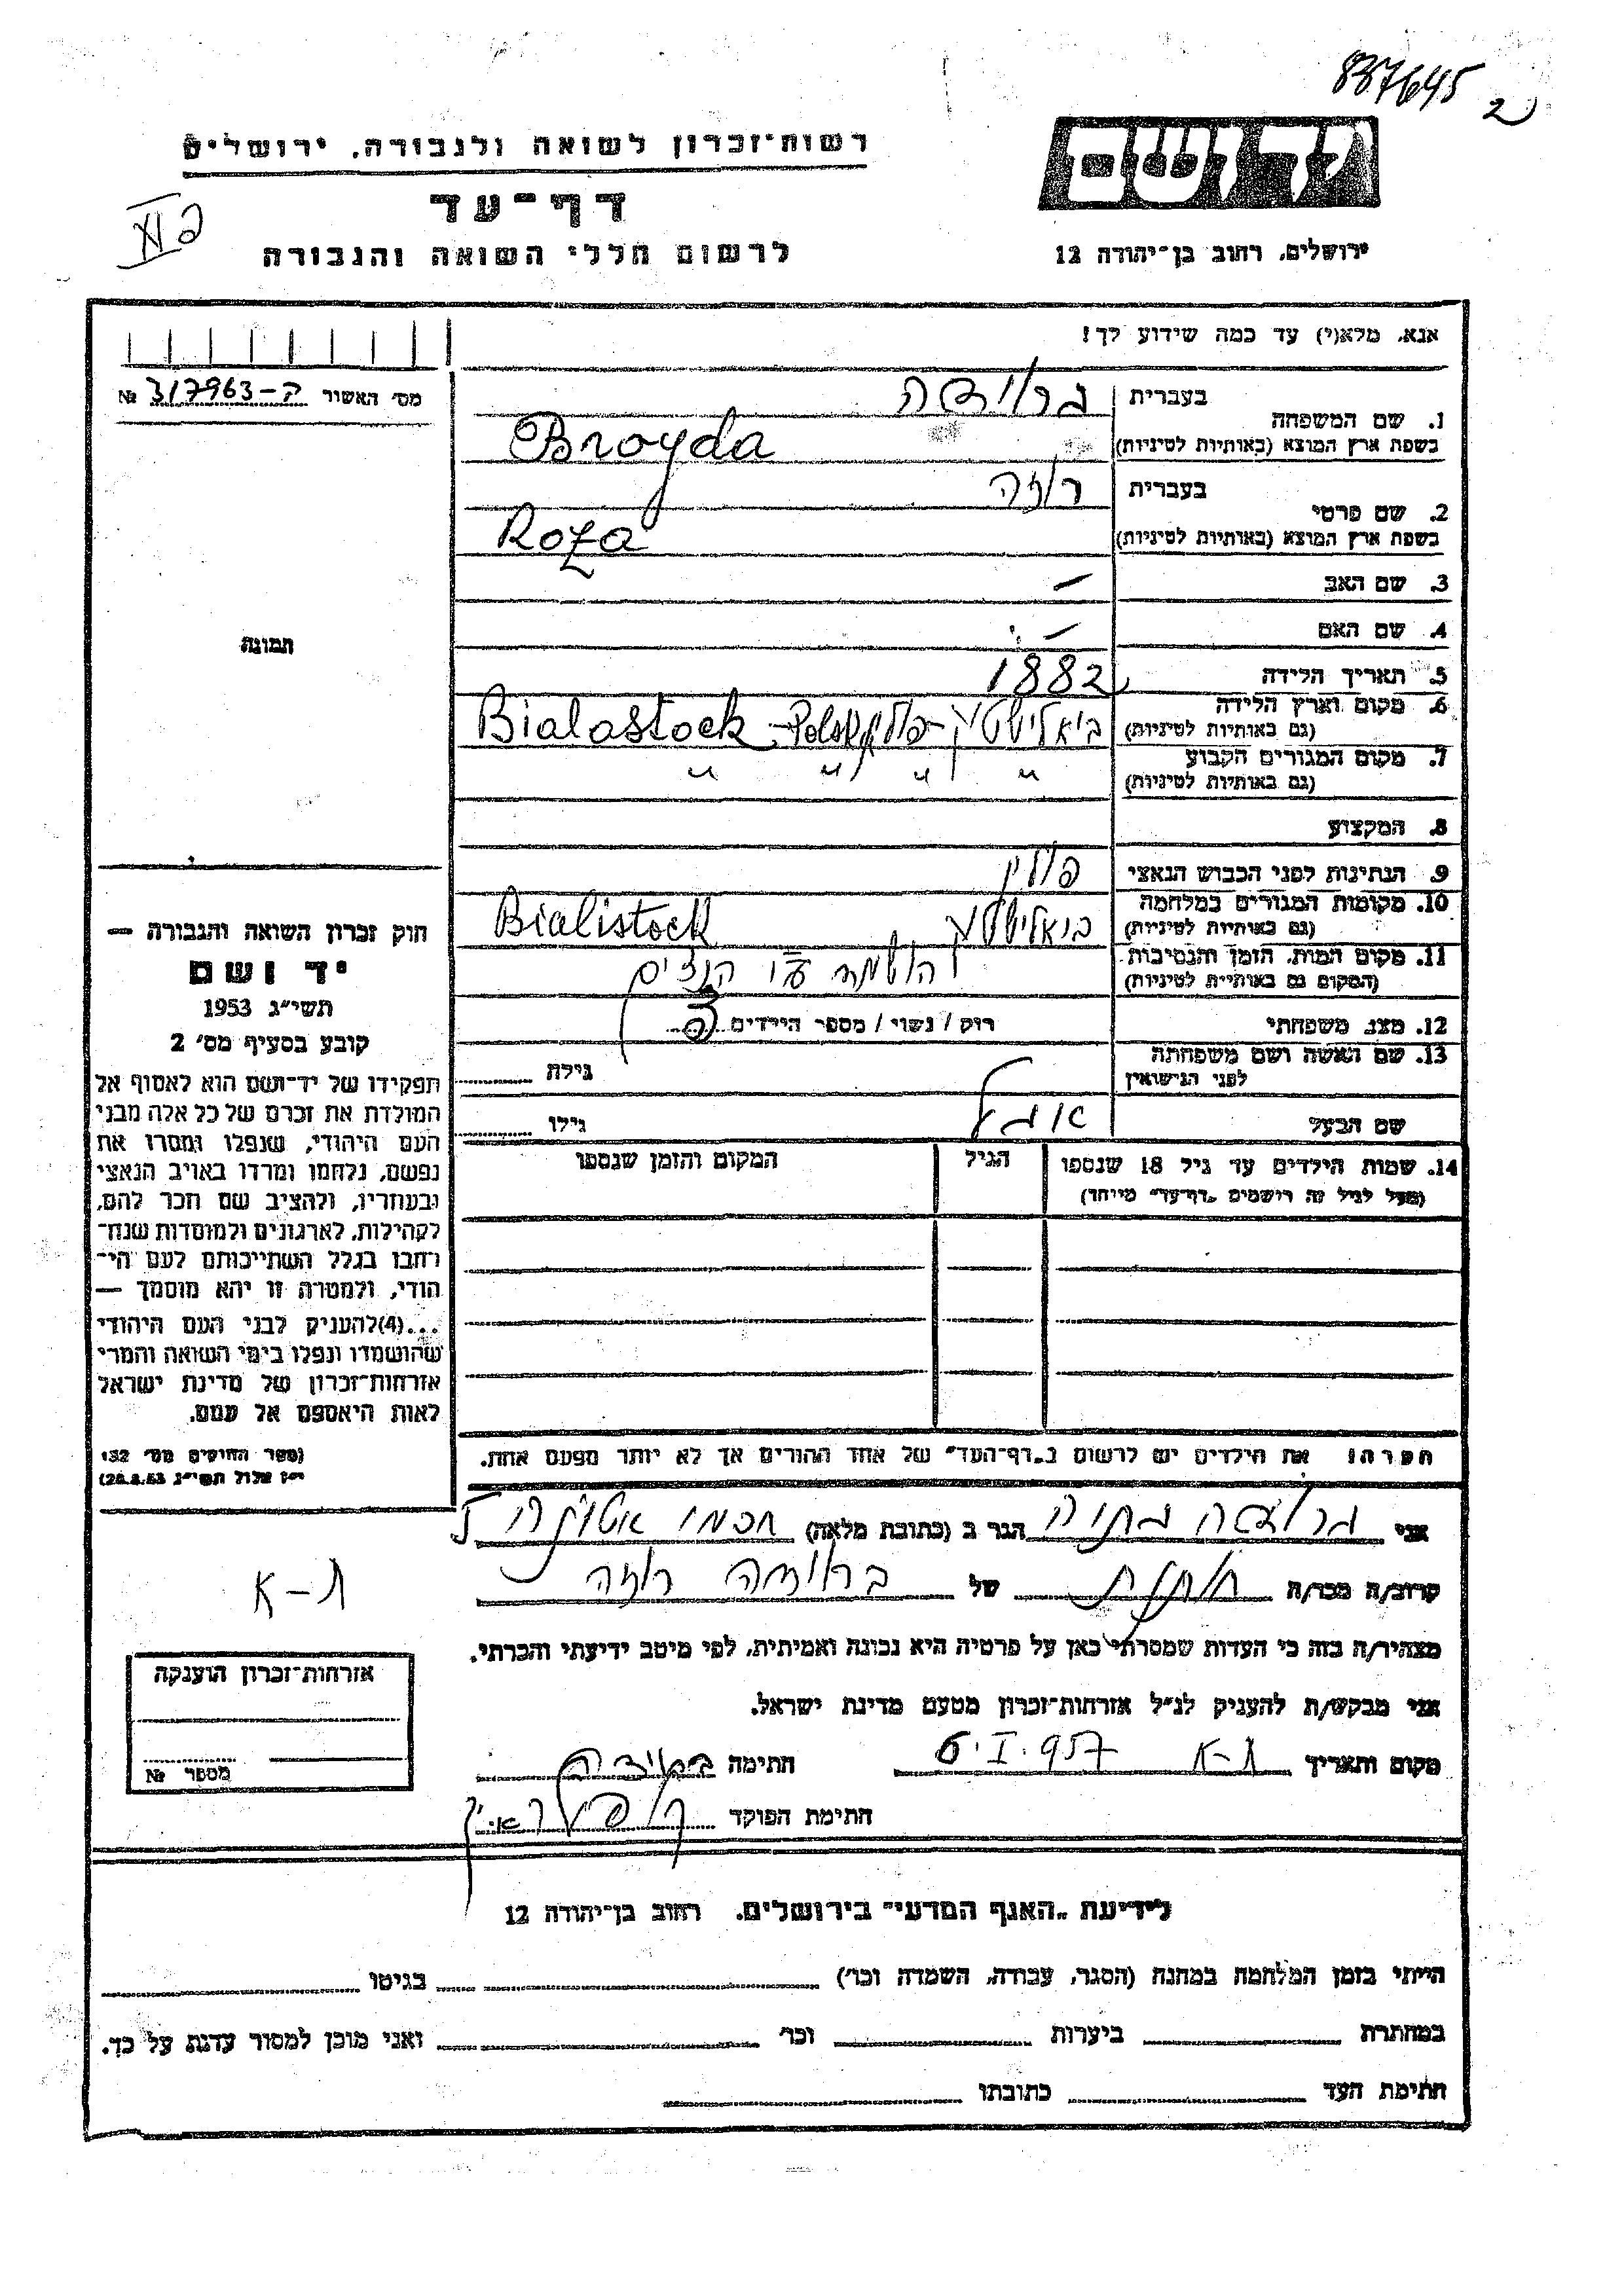 837645
2
רשות־זכרון לשואה ולגבורה, ירושלים
יד ושם
דף־עד
לרשום חללי השואה והגבורה
ירושלים, רחוב בן־יהודה 12
אנא, מלא(י) עד כמה שידוע לך!
מס' האשור ק-317963 №
בעברית ברוידה
1. שם המשפחה
בשפת ארץ המוצא (באותיות לטיניות) Broyda
בעברית רוזה
2. שם פרטי
בשפת ארץ המוצא (באותיות לטיניות) Roza
3. שם האב —
4. שם האם —
תמונה
5. תאריך הלידה 1882
6. מקום וארץ הלידה ביאליסטוק-פולין Bialastock-Polska
(גם באותיות לטיניות)
7. מקום המגורים הקבוע " " " "
(גם באותיות לטיניות)
8. המקצוע
9. הנתינות לפני הכבוש הנאצי פולין
10. מקומות המגורים במלחמה ביאליסטוק Bialistock
(גם באותיות לטיניות)
11. מקום המות, הזמן והנסיבות הושמדה ע"י הנצים
(המקום גם באותיות לטיניות)
12. מצב משפחתי רוק / נשוי / מספר הילדים
13. שם האשה ושם משפחתה גילה
לפני הנישואין
שם הבעל גילו
14. שמות הילדים עד גיל 18 שנספו הגיל המקום והזמן שנספו
(מעל לגיל זה רושמים „דף־עד" מיוחד)
חוק זכרון השואה והגבורה —
יד ושם
תשי"ג 1953
קובע בסעיף מס' 2
תפקידו של יד־ושם הוא לאסוף אל
המולדת את זכרם של כל אלה מבני
העם היהודי, שנפלו ומסרו את
נפשם, נלחמו ומרדו באויב הנאצי
ובעוזריו, ולהציב שם וזכר להם,
לקהילות, לארגונים ולמוסדות שנח־
רבו בגלל השתייכותם לעם הי־
הודי, ולמטרה זו יהא מוסמך —
...(4)להעניק לבני העם היהודי
שהושמדו ונפלו בימי השואה והמרי
אזרחות־זכרון של מדינת ישראל
לאות היאספם אל עמם.
(ספר החוקים מס' 132
י"ז אלול תשי"ג 28.8.53)
הערה: את הילדים יש לרשום ב„דף־העד" של אחד ההורים אך לא יותר מפעם אחת.
אני ברוידה הגר ב (כתובת מלאה)
קרוב/ה מכר/ה של ברוידה רוזה
מצהיר/ה בזה כי העדות שמסרתי כאן על פרטיה היא נכונה ואמיתית, לפי מיטב ידיעתי והכרתי.
אני מבקש/ת להעניק לנ"ל אזרחות־זכרון מטעם מדינת ישראל.
ת-א
אזרחות־זכרון הוענקה
מספר №
מקום ותאריך ת-א 6.I.957 חתימה ברוידה
חתימת הפוקד
לידיעת „האגף המדעי" בירושלים, רחוב בן־יהודה 12
הייתי בזמן המלחמה במחנה (הסגר, עבודה, השמדה וכו') בגיטו
במחתרת ביערות וכו' ואני מוכן למסור עדות על כך.
חתימת העד כתובתו